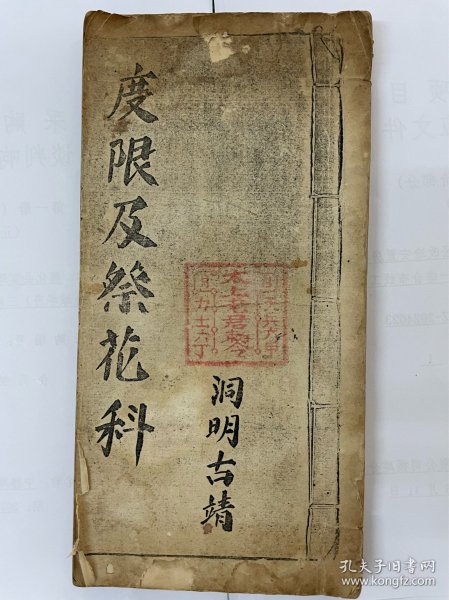 度限及祭花科
太上老君敕
洞明古靖
孔夫子旧书网
www.kongfz.com